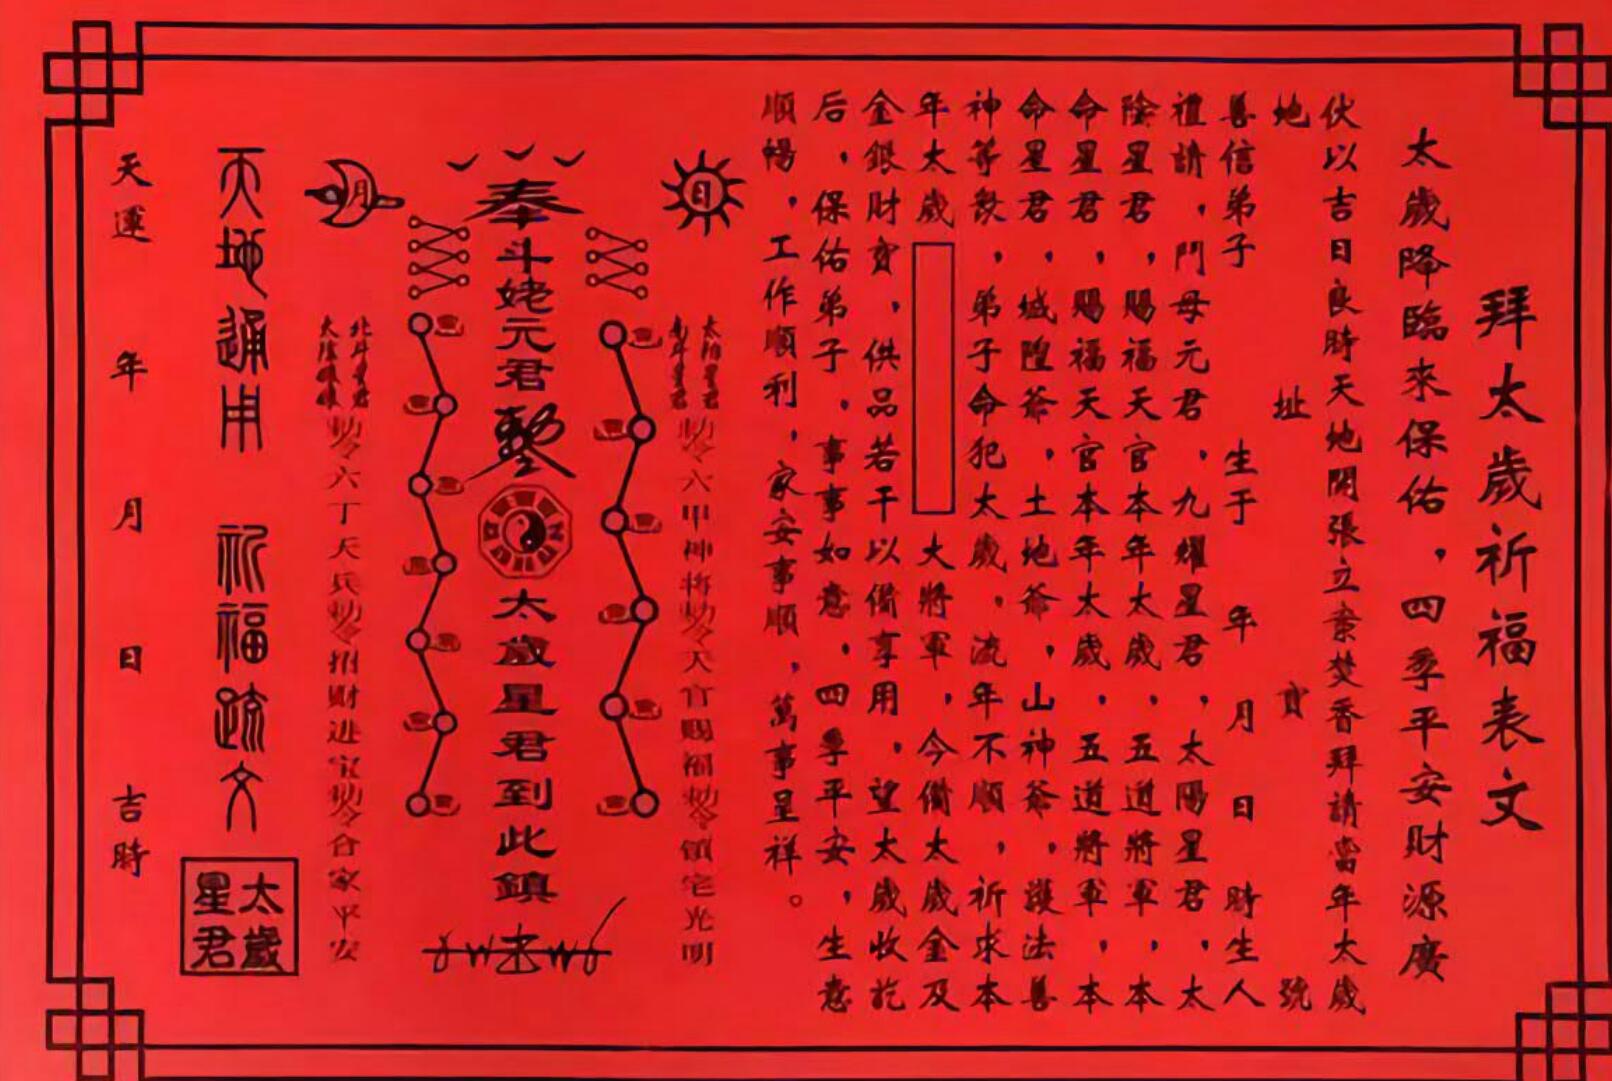 拜太歲祈福表文
太歲降臨來保佑，四季平安財源廣
伏以吉日良時天地開張立案焚香拜請當年太歲
地 址 寶 號
善信弟子 生于 年 月 日 時生人
禮請，門母元君，九耀星君，太陽星君，太
陰星君，賜福天官本年太歲，五道將軍，本
命星君，賜福天官本年太歲，五道將軍，本
命星君，城隍爺，土地爺，山神爺，護法善
神等敬，弟子命犯太歲，流年不順，祈求本
年太歲 大將軍，今備太歲金及
金銀財寶，供品若干以備享用，望太歲收訖
后，保佑弟子，事事如意，四季平安，生意
順暢，工作順利，家安事順，萬事呈祥。
日
太陽星君
南斗星君
勅令六甲神将勅令天官賜福勅令鎮宅光明
奉斗姥元君勅太歲星君到此鎮
月
北斗星君
太陰娘娘
勅令六丁天兵勅令招财进宝勅令合家平安
天地通用 祈福疏文
太歲
星君
天運 年 月 日 吉時